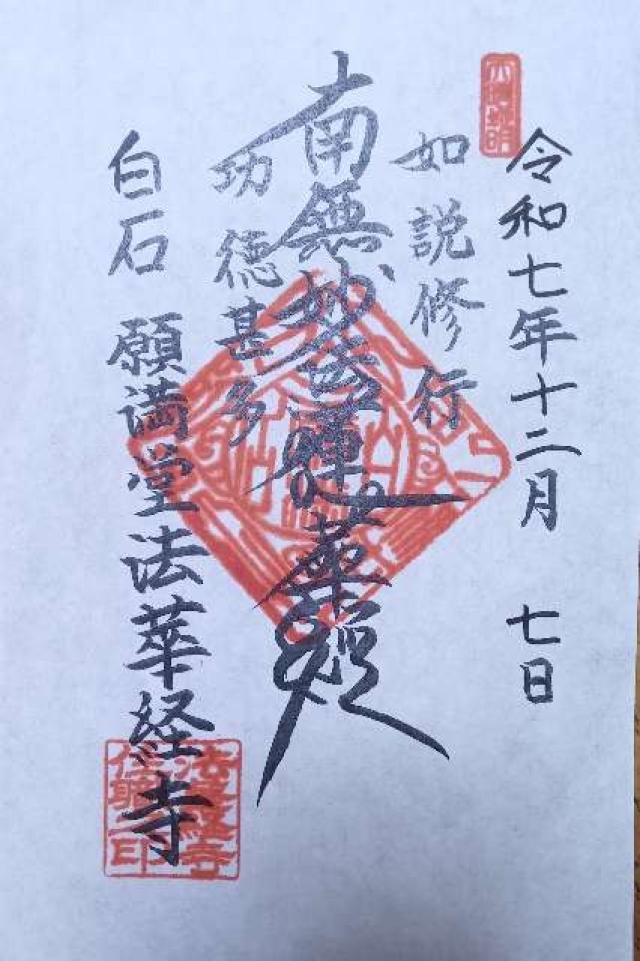 令和七年十二月 七日
如説修行
南無妙法蓮華経
功徳甚多
白石 願満堂法華経寺
法華経寺
住職之印